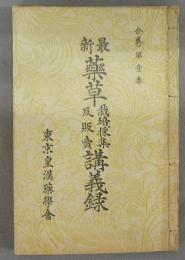 合卷 第壹卷
最新 藥草 栽培採集及販賣 講義録
東京皇漢藥學會